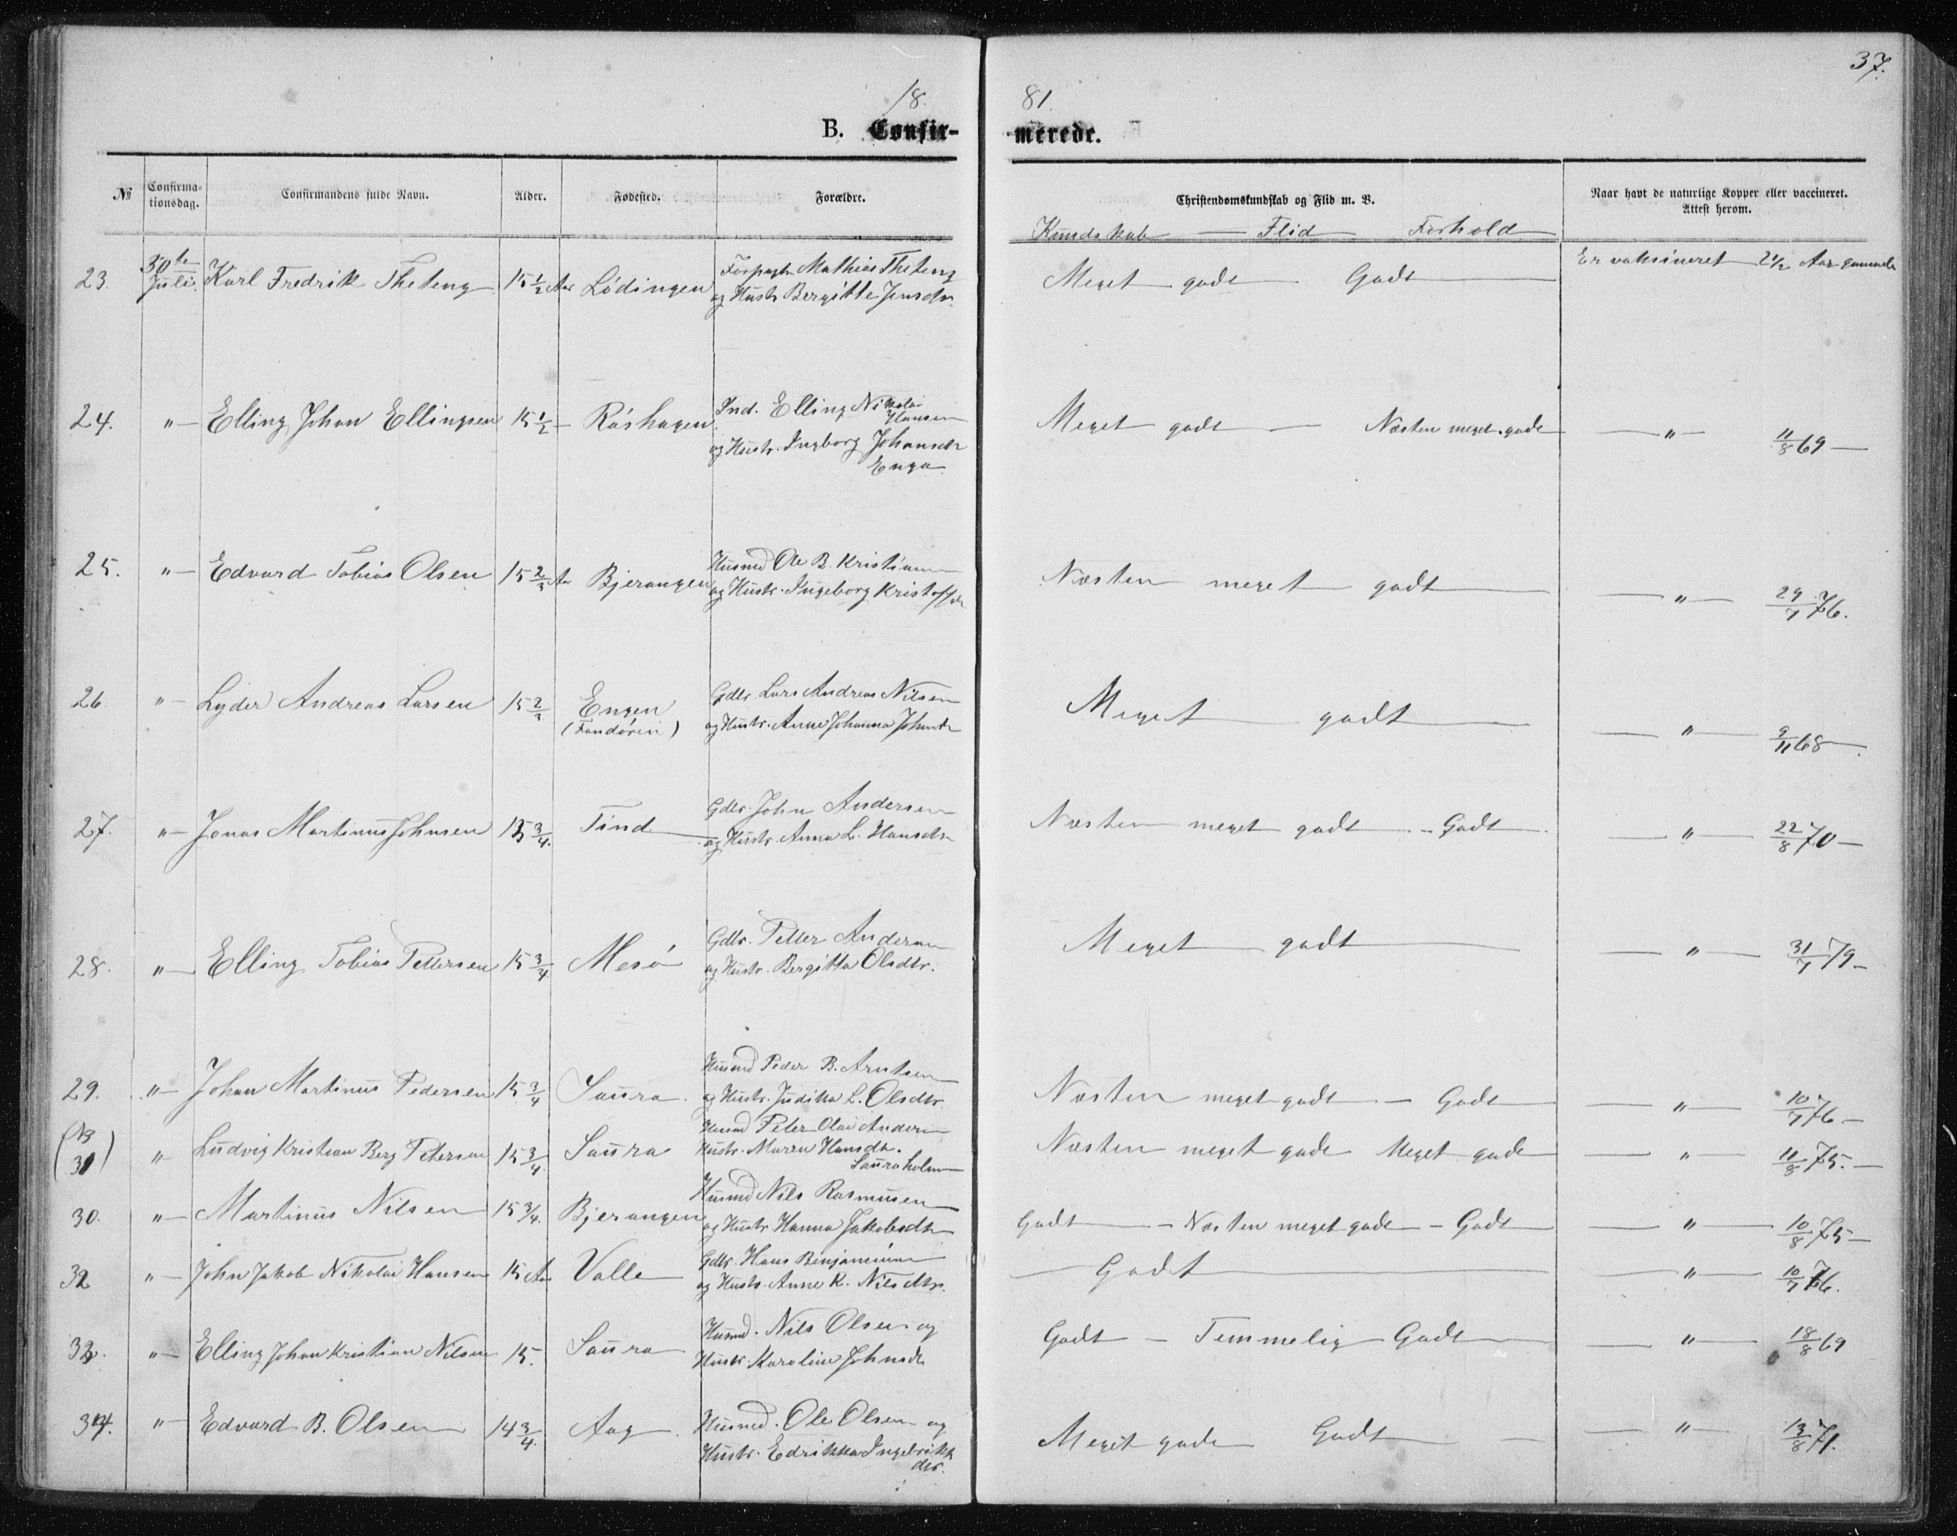 37.
18 81.
B. Confir- merede.
№ Confirma-tionsdag. Confirmandens fulde Navn. Alder. Fødested. Forældre. Christendomskundskab og Flid m. V. Naar havt de naturlige Kopper eller vaccineret. Attest herom.
Kundskab — Flid Forhold
23. 30te Juli. Karl Fredrik Theteng 15 1/2 Aar Lödingen Forpagtr Mathias Theteng Meget godt Godt Er vaksineret 2 1/2 Aar gammel
og Hustr Bergitte Jensdr.
24. " Elling Johan Ellingsen 15 1/2 Råshagen Ind. Elling Nikolai Hansen Meget godt — Næsten meget godt — " — 11/8 69 —
og Hustr. Ingborg Johansdr
Enga
25. " Edvard Tobias Olsen 15 2/3 Aar Bjerangen Husmd Ole B. Kristiansen Næsten meget godt — " — 29/7 76.
og Hustr. Ingeborg Kristoffdr
26. " Lyder Andreas Larsen 15 2/3 Engen Gdbr. Lars Andreas Nilsen Meget godt — " — 9/11 68 —
(Fondören) og Hustr. Anne Johanna Johnsdr
27. " Jonas Martinus Johnsen 15 3/4. Tind Gdbr. John Andersen Næsten meget godt — Godt — " — 22/8 70 —
og Hustr. Anna L. Hansdr
28. " Elling Tobias Pettersen 15 3/4 Mesö Gdbr. Petter Andersen Meget godt — " — 31/7 79 —
og Hustr. Bergitta Olsdtr.
29. " Johan Martinus Pedersen 15 3/4 Saura. Husmd Peder B. Arntsen Næsten meget godt — Godt — " — 10/7 76 —
og Hustr. Juditta L. Olsdtr.
(NB 31) " Ludvig Kristian Berg Petersen 15 3/4. Saura Husmd Peter Olai Andersen Næsten meget godt Meget godt — " — 11/8 75. —
Hustr. Maren Hansdtr.
Sauraholm
30. " Martinus Nilsen 15 3/4. Bjerangen Husmd Nils Rasmusen Godt — Næsten meget godt — Godt — " — 10/8 75 —
og Hustr Hanna Jakobsdtr
32 " John Jakob Nikolai Hansen 15 Aar Valle Gdbr. Hans Benjaminsen Godt — " — 10/7 76.
og Hustr. Anne K. Nilsdtr.
33. " Elling Johan Kristian Nilsen 15. Saura Husmd. Nils Olsen og Godt — Temmelig Godt — " — 18/8 69
Hustr Karoline Johnsdr
34. " Edvard B. Olsen 14 3/4. Aag. Husmd. Ole Olsen og Meget godt Godt — " — 13/8 71.
Hustr. Edrikka Ingebrikt
dtr.